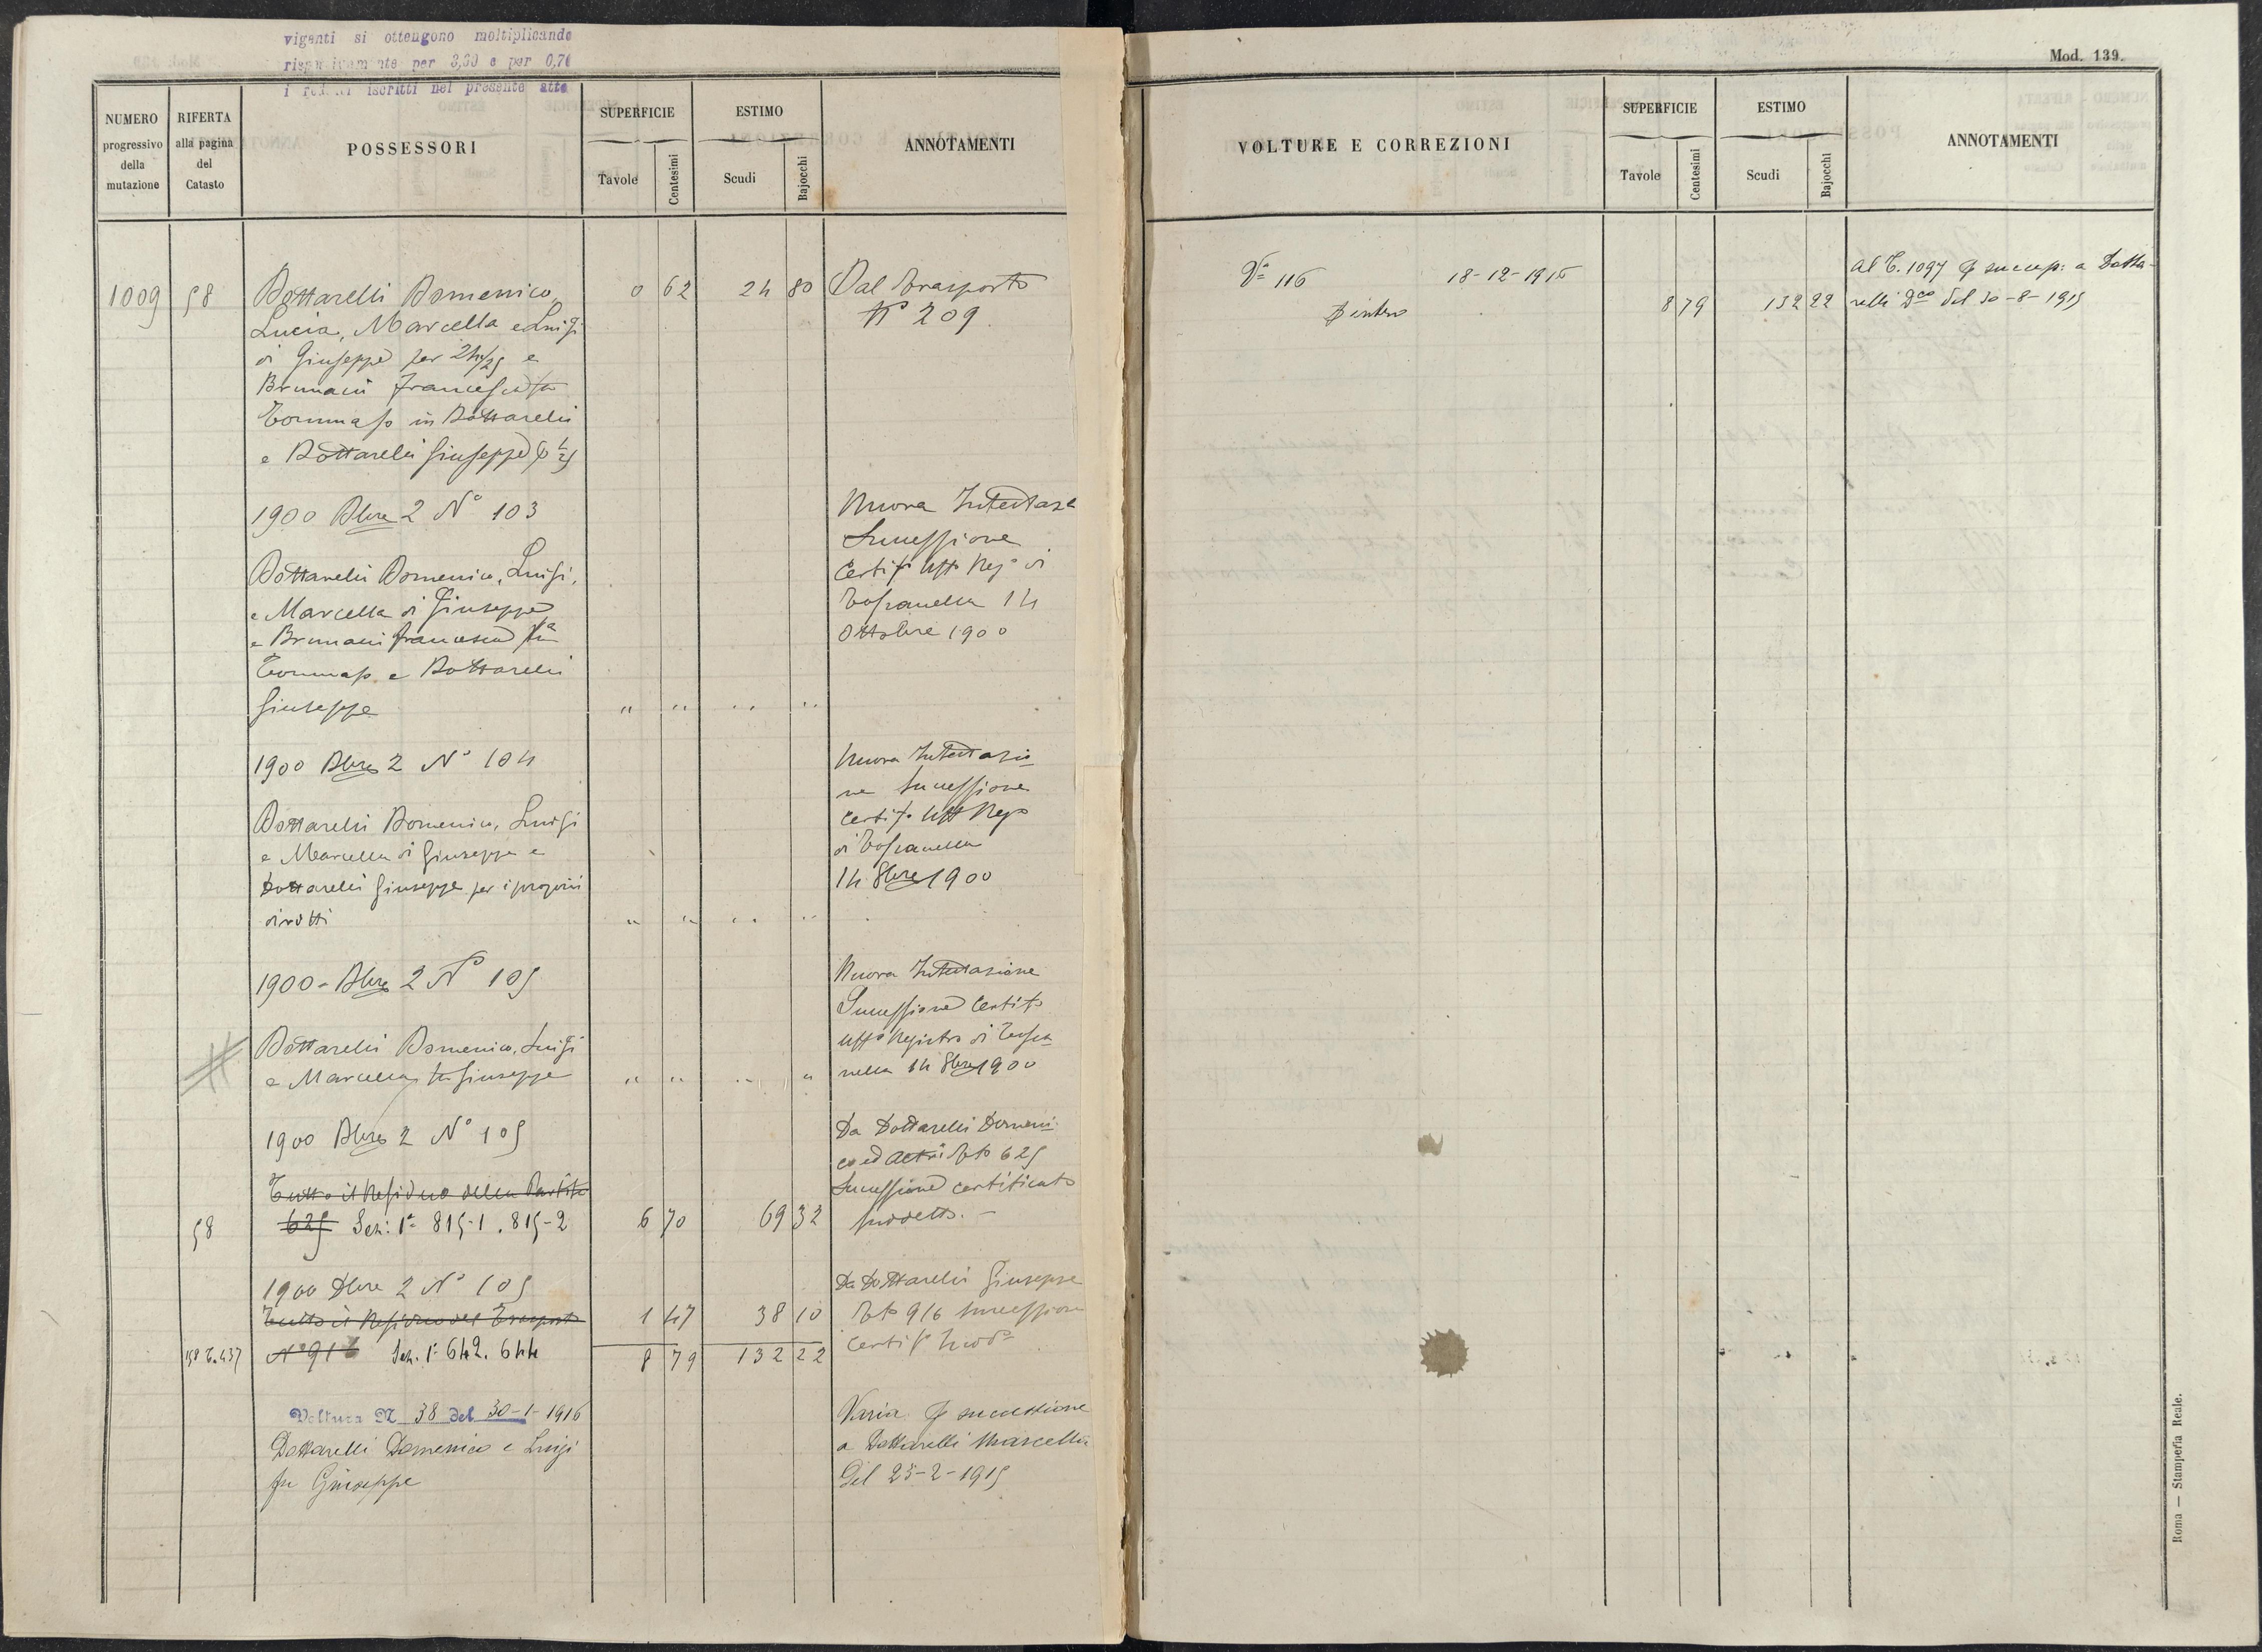 viganti si ottengono moltiplicando
per 3,30 e per 0,70
i iscritti nel presente atto
NUMERO progressivo della mutazione
RIFERTA alla pagina del Catasto
POSSESSORI
SUPERFICIE
Tavole Centesimi
ESTIMO
Scudi Bajocchi
ANNOTAMENTI
1009 58 Dottarelli Domenico, 0 62 24 80 Dal Trasporto
Lucia, Marcella e Luigi N° 209
di Giuseppe per 24/25 e
Brunacci Francesca fu
Tommaso in Dottarelli
e Dottarelli Giuseppe p 1/25
1900 Dbre 2 N° 103 Nuova Intestaze
Successione
Dottarelli Domenico, Luigi, Certifo Uffo Rego di
e Marcella di Giuseppe Toscanella 14
e Brunacci Francesca fu Ottobre 1900
Tommaso e Dottarelli
Giuseppe " " " "
1900 Dbre 2 N° 104 Nuova Intestazio
ne Successione
Dottarelli Domenico, Luigi Certifo Uff Rego
e Marcella di Giuseppe e di Toscanella
Dottarelli Giuseppe per i proprii 14 8bre 1900
diritti " " " "
1900 - Dbre 2 N° 105 Nuova Intestazione
Successione Certifo
Dottarelli Domenico, Luigi Uffo Registro di Tosca
e Marcella fu Giuseppe " " " " nella 14 8bre 1900
1900 Dbre 2 N° 105 Da Dottarelli Domeni
co ed altri Rto 625
Tutto il Residuo della Partita Successione certificato
58 625 Sez: 1a 815-1. 815-2 6 70 69 32 suddetto. -
1900 Dbre 2 N° 105 Da Dottarelli Giuseppe
Tutto il Residuo del Trasporto 1 47 38 10 916 successione
158 T. 437 N° 916 Sez. 1a 642. 644 8 79 132 22
Voltura N 38 del 30-1-1916 Varia p successione
Dottarelli Domenico e Luigi a Dottarelli Marcella
fu Giuseppe Del 25-2-1915
Mod. 139.
VOLTURE E CORREZIONI
SUPERFICIE
Tavole Centesimi
ESTIMO
Scudi Bajocchi
ANNOTAMENTI
Va 116 18-12-1915 al T. 1097 p success: a Dotta-
p intero 8 79 132 22 relli Dco del 30-8-1915
Roma — Stamperia Reale.